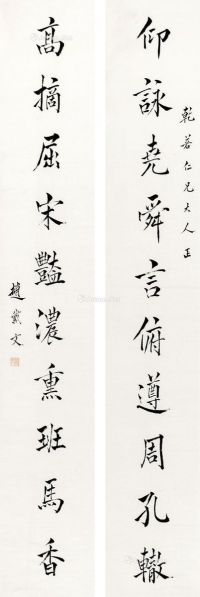 乾若仁兄大人正
仰詠堯舜言俯遵周孔轍
高摘屈宋豔濃熏班馬香
趙戴文